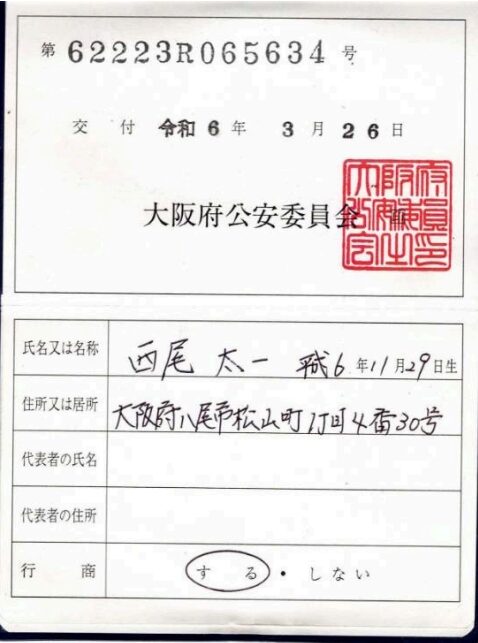 第 62223R065634 号
交付 令和 6 年 3 月 26 日
大阪府公安委員会
大阪府公安委員会
氏名又は名称 西尾 太一 平成6年11月29日生
住所又は居所 大阪府八尾市松山町1丁目4番30号
代表者の氏名
代表者の住所
行商 する・しない